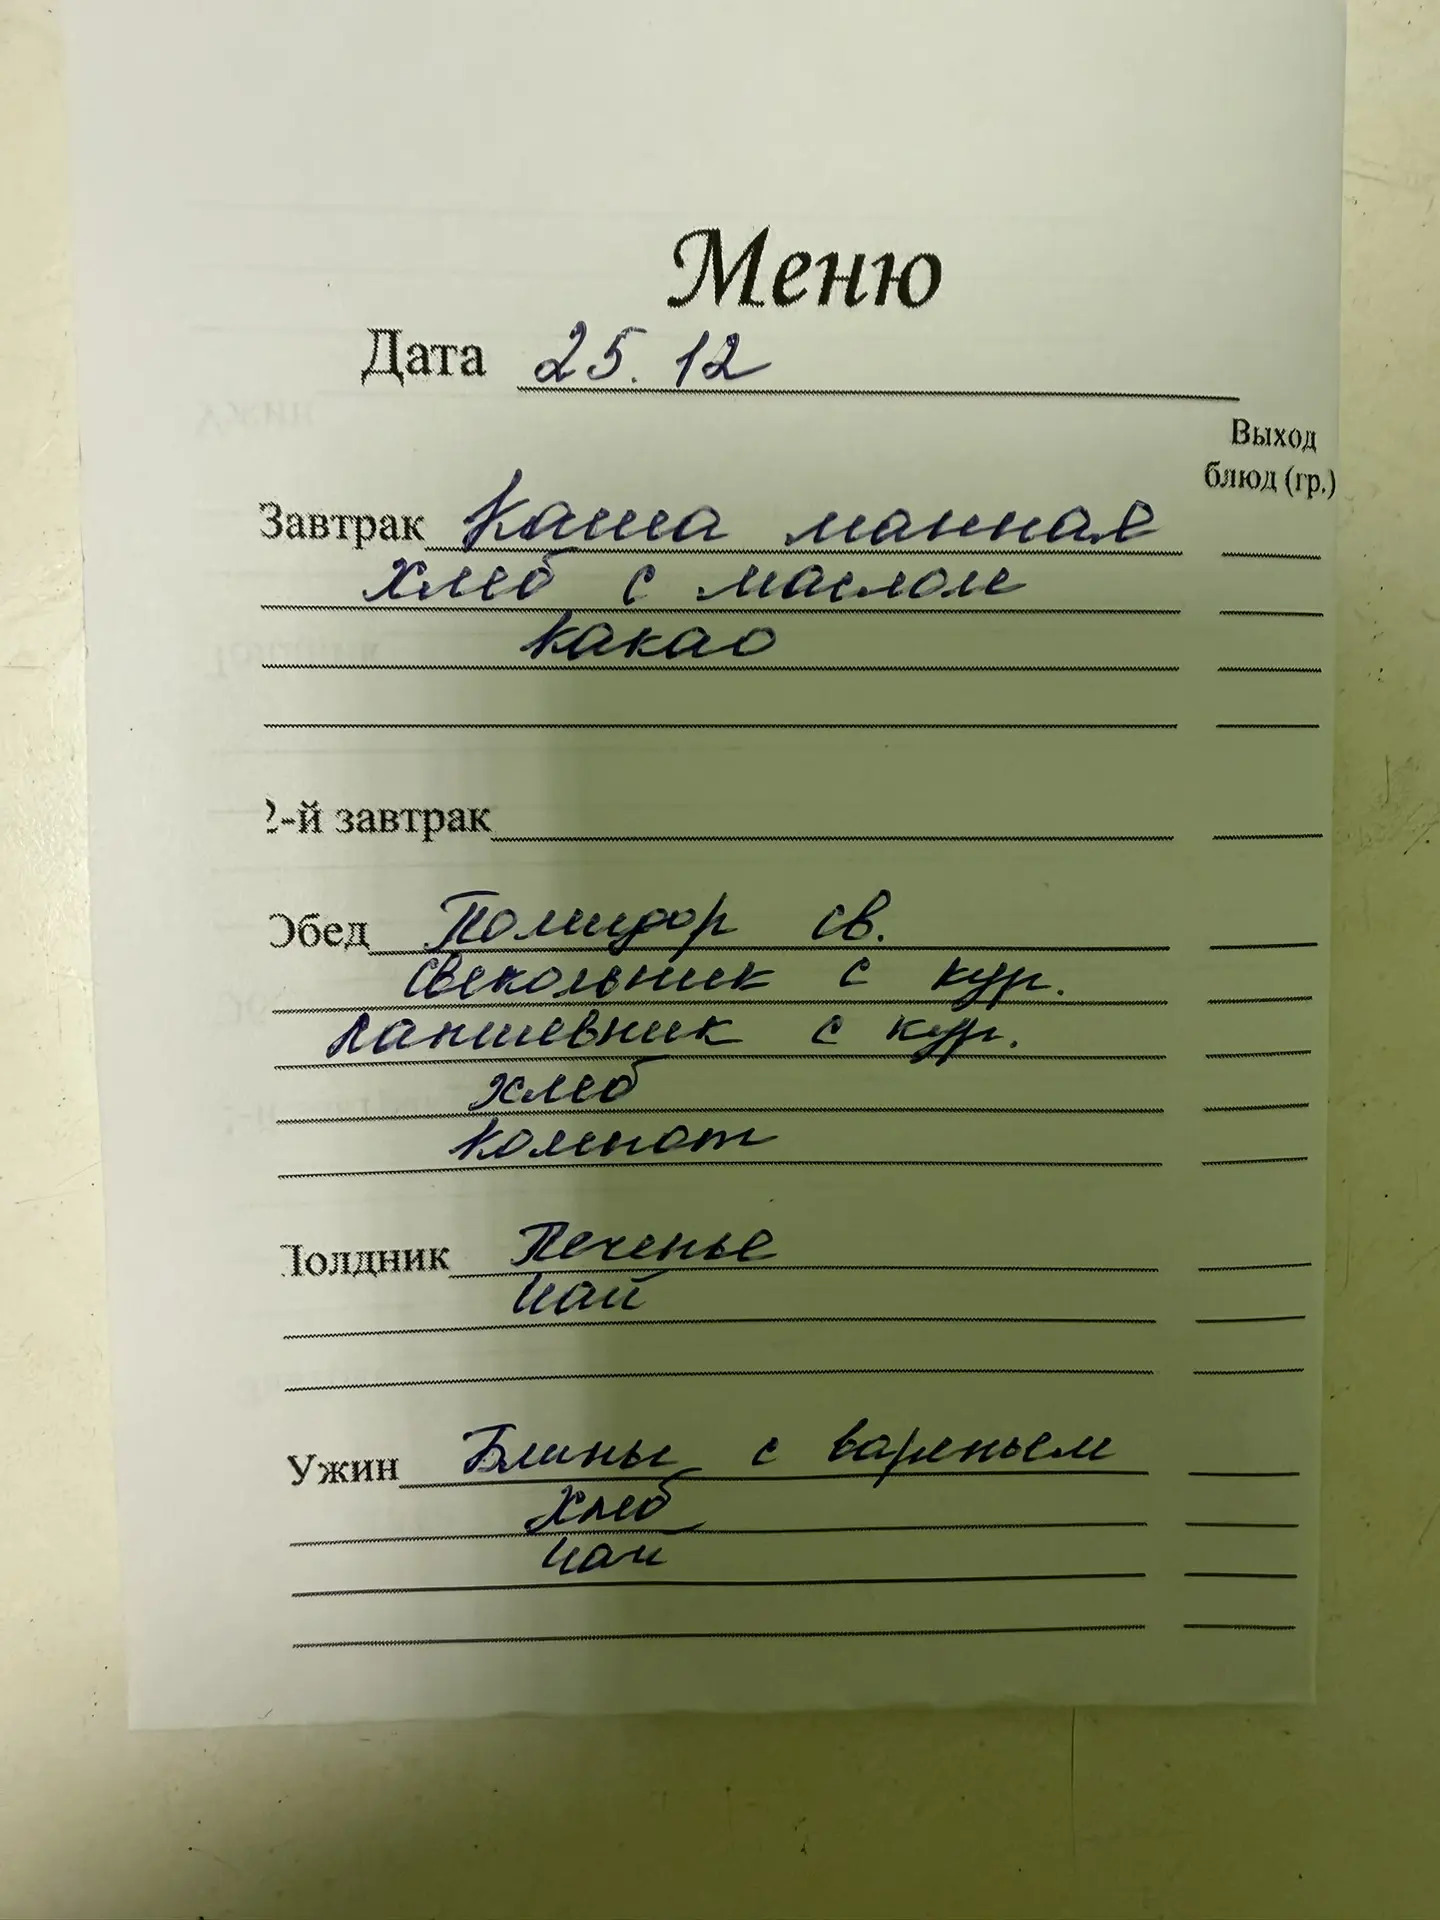 Меню
Дата 25.12
Выход
блюд (гр.)
Завтрак Каша манная
хлеб с маслом
какао
2-й завтрак
Обед Помидор св.
свекольник с кур.
лапшевник с кур.
хлеб
компот
Полдник Печенье
чай
Ужин Блины с вареньем
хлеб
чай